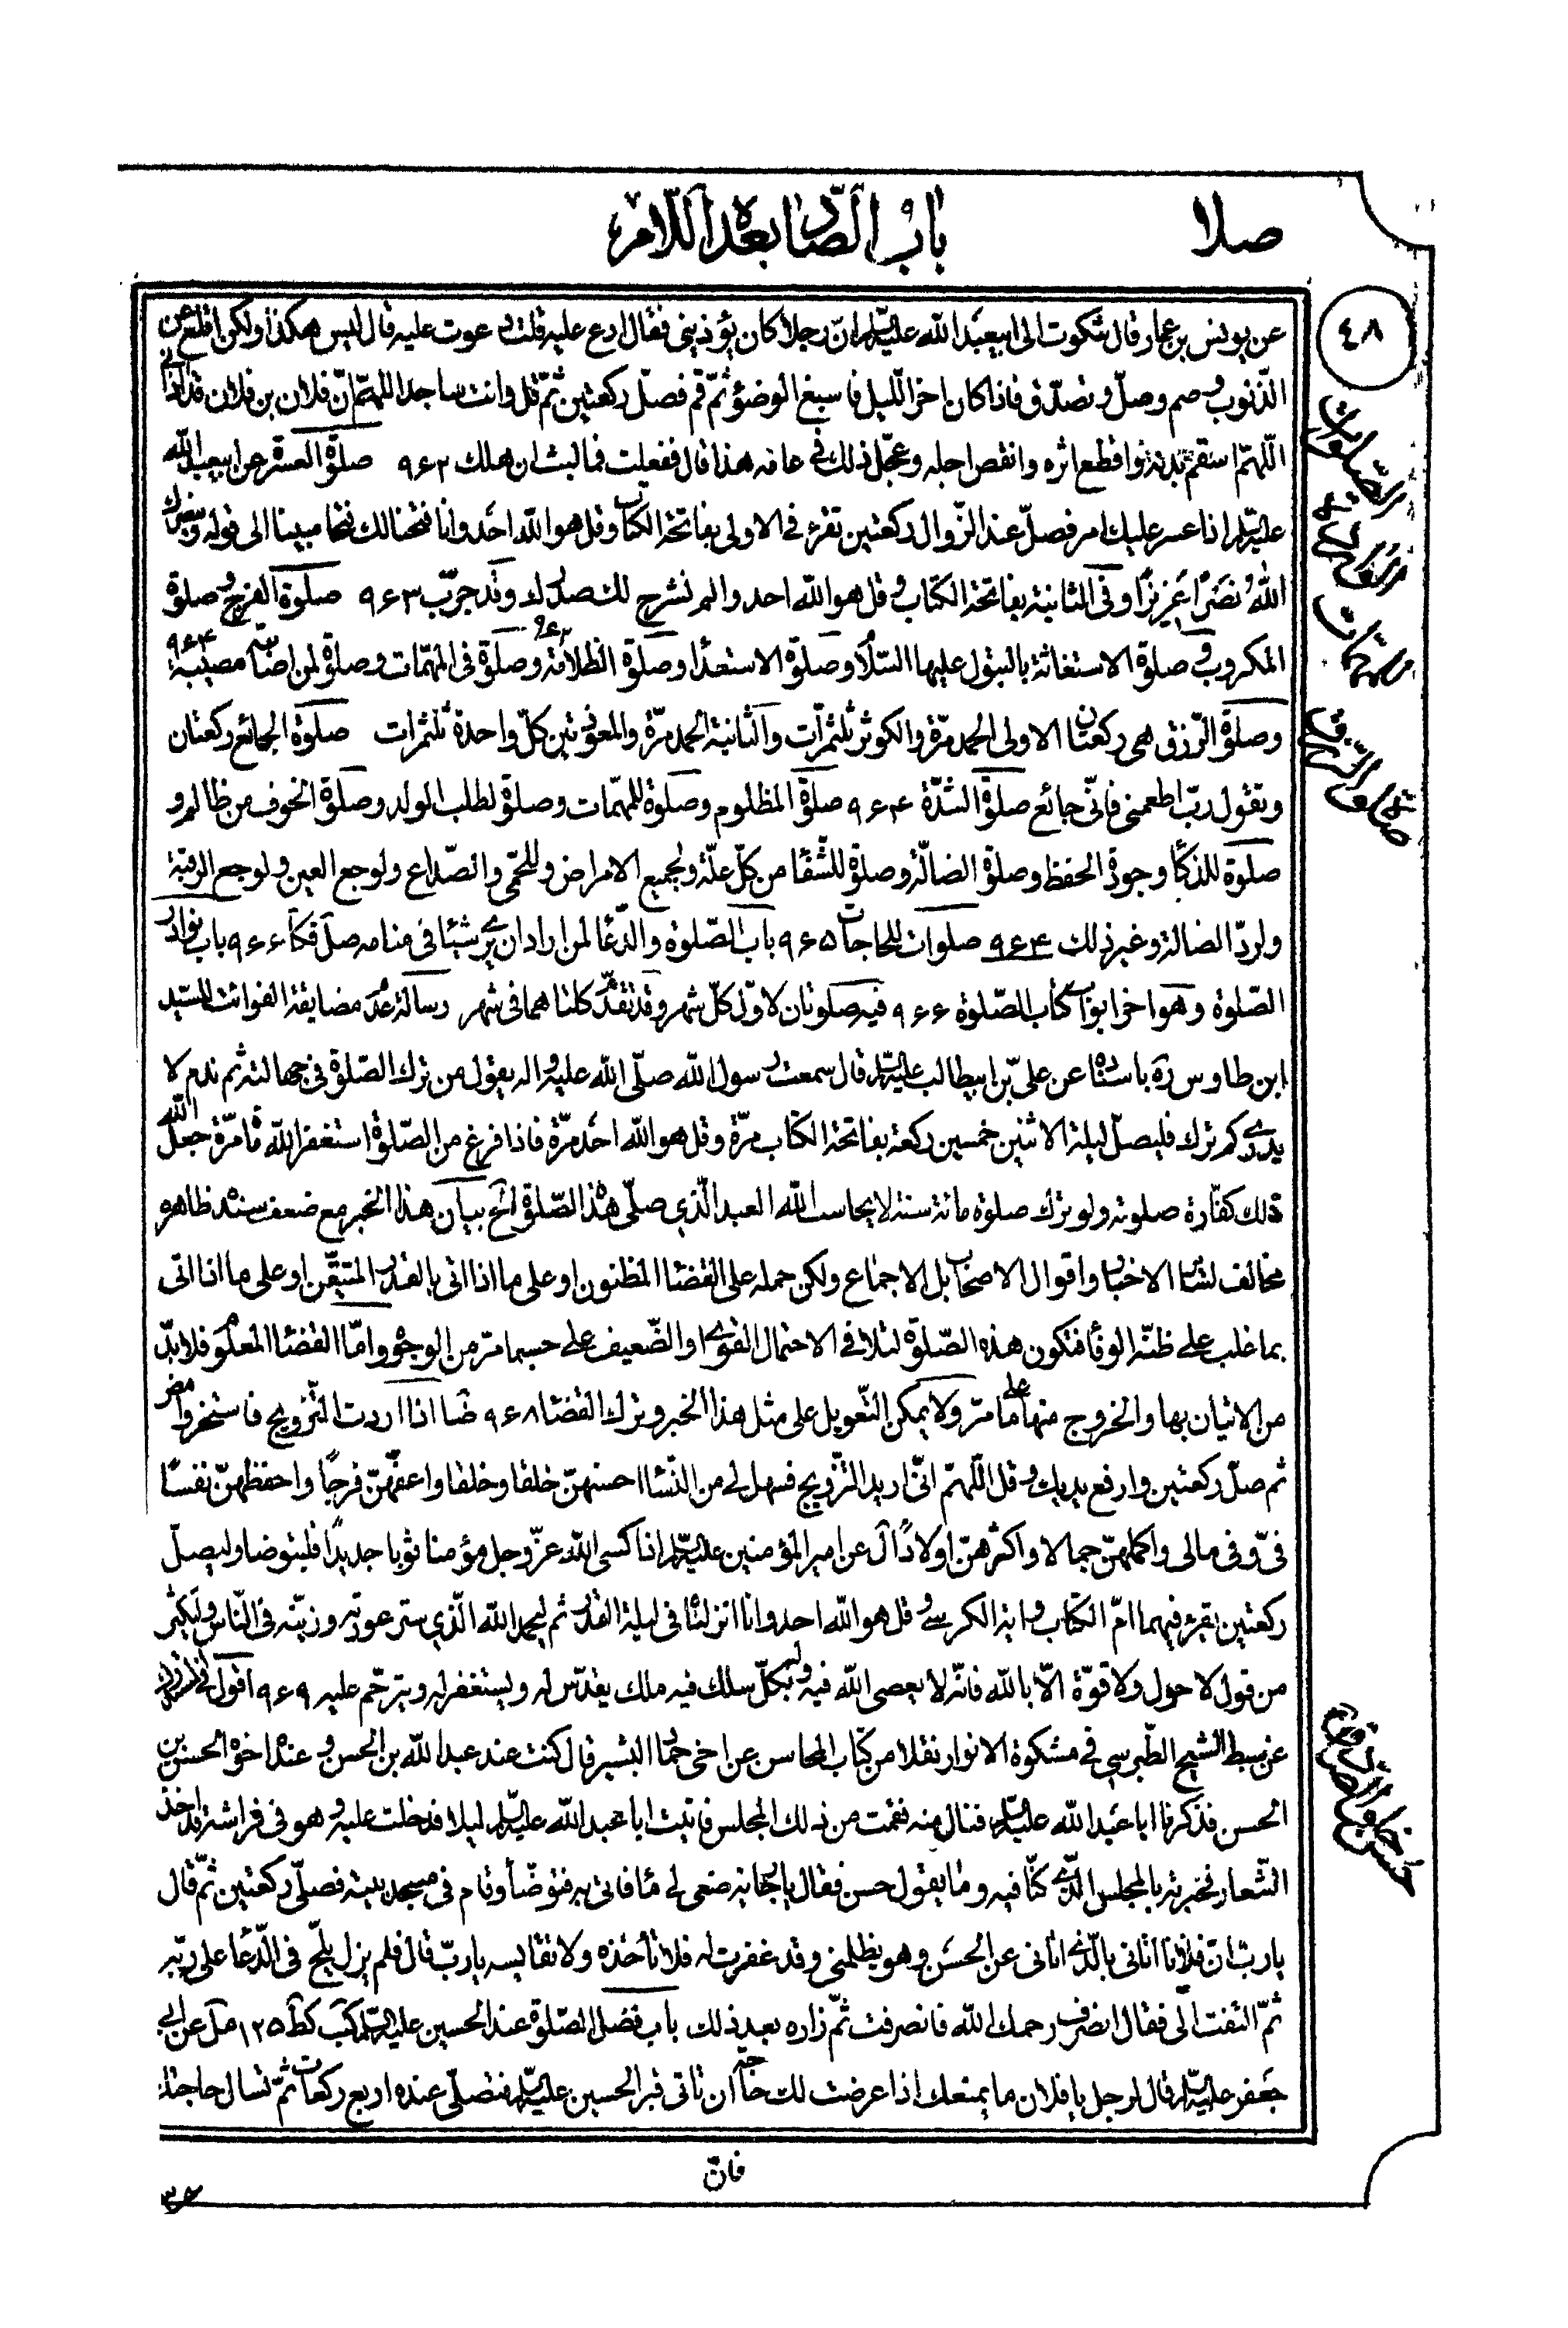 صلا
باب الصّاد بعده اللّام
٤٨
عن يونس بن عمار قال شكوت الى ابيعبد الله عليه السّلم انّ رجلا كان يؤذيني فقال ادع عليه قلت دعوت عليه قال ليس هكذا ولكن اقلع عن
الذّنوب وصم وصلّ وتصدّق فاذا كان اخر اللّيل فاسبغ الوضؤ ثمّ قم فصلّ ركعتين ثمّ قل وانت ساجد اللهمّ انّ فلان بن فلان قد آذاني
اللّهمّ اسقم بدنه واقطع اثره وانقص اجله وعجّل ذلك في عامه هذا قال ففعلت فما لبث ان هلك ٩٤٢ صلوة العسر عن ابيعبد الله
عليه السّلم اذا عسر عليك امر فصلّ عند الزّوال ركعتين تقرء في الاولى بفاتحة الكتاب وقل هو الله احد وانا فتحنا لك فتحا مبينا الى قوله وينصرك
اللهُ نصَرًا عَزيزًا وفي الثانية بفاتحة الكتاب وقل هو الله احد والم نشرح لك صدرك وقد جرّب ٩٤٣ صلوة الفرج وصلوة
المكروب وصلوة الاستغاثة بالبتول عليها السّلام وصلوة الاستعداء وصلوة الظلامة وصلوة في المهمّات وصلوة لمن اصابته مصيبة ٩٤٤
وصلوة الرّزق هي ركعتان الاولى الحمد مرّة والكوثر ثلثمرّات والثانية الحمد مرّة والمعوّذتين كلّ واحدة ثلثمرات صلوة الجائع ركعتان
وتقول ربّ اطعمني فانّي جائع صلوة الشدّة ٩٤٤ صلوة المظلوم وصلوة للمهمّات وصلوة لطلب الولد وصلوة الخوف من ظالم و
صلوة للذكاء وجودة الحفظ وصلوة الضالّة وصلوة للشّفاء من كلّ علّة ولجميع الامراض وللحمّى والصّداع ولوجع العين ولوجع الرقبة
ولردّ الضالة وغير ذلك ٩٤٤ صلوات للحاجات ٩٤٥ باب الصّلوة والدّعا لمن اراد ان يرى شيئا في منامه صل قكا ٩٤٤ باب نوادر
الصّلوة وهو اخر ابواب كتاب الصّلوة ٩٤٤ فيه صلوتان لاوّل كلّ شهر وقد تقدّم كلتاهما في شهر رسالة عدم مضايقة الفوائت للسّيد
ابن طاوس ره باسناده عن عليّ بن ابيطالب عليه السّلم قال سمعت رسول الله صلّى الله عليه واله يقول من ترك الصّلوة في جهالته ثم ندم لا
يدري كم ترك فليصلّ ليلة الاثنين خمسين ركعة بفاتحة الكتاب مرّة وقل هو الله احد مرّة فاذا فرغ من الصّلوة استغفر الله مأة مرّة جعل الله
ذلك كفّارة صلوته ولو ترك صلوة مائة سنة لا يحاسب الله العبد الّذي صلّى هذه الصّلوة الخ بيان هذا الخبر مع ضعف سنده ظاهره
مخالف لسائر الاخبار واقوال الاصحاب بل الاجماع ولكن حمله على القضاء المظنون او على ما اذا اتى بالقدر المتيقّن او على ما اذا اتى
بما غلب على ظنّه الوفاء فتكون هذه الصّلوة لتلافي الاحتمال القوي او الضّعيف على حسبما مرّ من الوجوه وامّا القضاء المعلوم فلا بدّ
من الاتيان بها والخروج منها على ما مرّ ولا يمكن التّعويل على مثل هذا الخبر وترك القضا ٩٤٨ ضا اذا اردت التّزويج فاستخر وامض
ثم صلّ ركعتين وارفع يديك وقل اللّهمّ انّي اريد التزويج فسهل لي من النّساء احسنهنّ خلقا وخلقا واعفّهنّ فرجًا واحفظهنّ نفسًا
فيّ وفي مالي واكملهنّ جمالا واكثرهنّ اولادًا ل عن امير المؤمنين عليه السّلم اذا كسى الله عزّ وجل مؤمنا ثوبا جديدًا فليتوضا وليصلّ
ركعتين يقرء فيهما امّ الكتاب واية الكرسي وقل هو الله احد وانا انزلناه في ليلة القدر ثم ليحمد الله الّذي ستر عورته وزيّنه في النّاس وليكثر
من قول لا حول ولا قوّة الّا بالله فانّه لا يعصى الله فيه وله بكلّ سلك فيه ملك يقدّس له ويستغفر له ويترحّم عليه ٩٤٩ اقول
عن سبط الشيخ الطّبرسي في مشكوة الانوار نقلا من كتاب المحاسن عن اخي حماد البشير قال كنت عند عبد الله بن الحسن وعنده اخوه الحسن بن
الحسن فذكرنا ابا عبد الله عليه السّلم فنال منه فقمت من ذلك المجلس فاتيت ابا عبد الله عليه السّلم ليلا فدخلت عليه وهو في فراشه قد اخذ
الشّعار فخبرته بالمجلس الّذي كنّا فيه وما يقول حسن فقال يا جارية ضعي لي ماء فاتى به فتوضّأ وقام في مسجد بيته فصلّى ركعتين ثمّ قال
يا ربّ انّ فلانا اتاني بالّذي اتاني عن الحسن وهو يظلمني وقد غفرت له فلا تأخذه ولا تقايسه يا ربّ قال فلم يزل يلحّ في الدّعاء على ربّه
ثمّ التفت الّي فقال انصرف رحمك الله فانصرفت ثمّ زاره بعد ذلك باب فضل الصّلوة عند الحسين عليه السّلم كب كط ١٢٥ مل عن ابي
جعفر عليه السّلم قال لرجل يا فلان ما يمنعك اذا عرضت لك حاجة ان تاتي قبر الحسين عليه السّلم فتصلّي عنده اربع ركعات ثمّ تسال حاجتك
فانّ
الصّلوات
صلوة الرزق